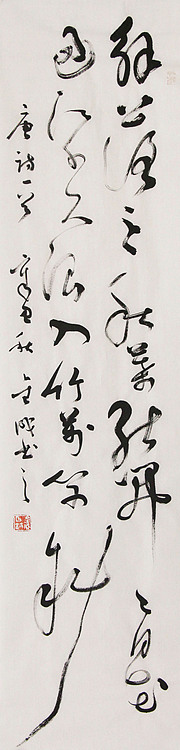 解落三秋葉能開二月花
過江千尺浪入竹萬竿斜
唐詩一首 秋 書之